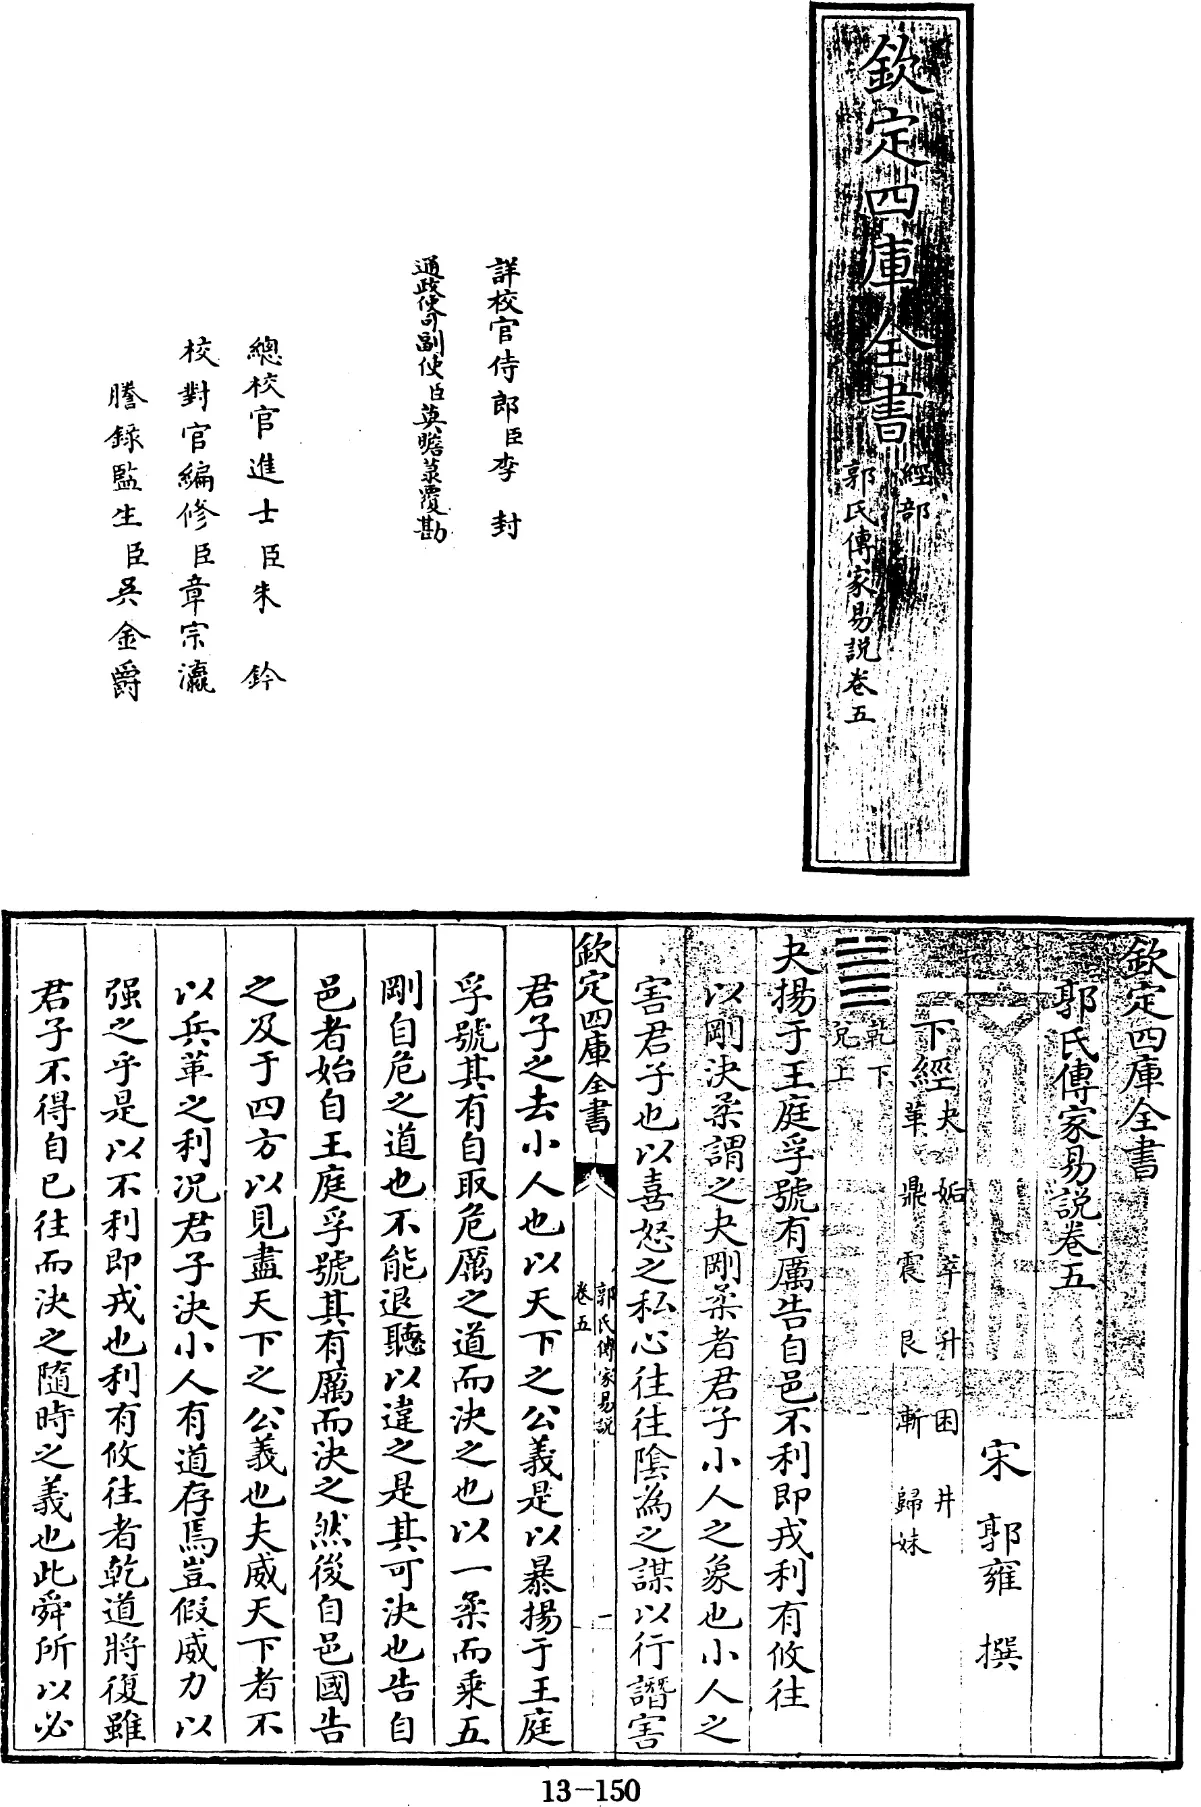 欽定四庫全書
經部
郭氏傳家易説卷五
詳校官侍郎臣李封
通政使司副使臣莫瞻菉覆勘
總校官進士臣朱鈐
校對官編修臣章宗瀛
謄錄監生臣吳金爵
欽定四庫全書
郭氏傳家易説卷五
宋郭雍撰
下經
夬姤萃升困井
革鼎震艮漸歸妹
乾下
兌上
夬揚于王庭孚號有厲告自邑不利即戎利有攸往
以剛決柔謂之夬剛柔者君子小人之象也小人之
害君子也以喜怒之私心往往陰為之謀以行譖害
欽定四庫全書
郭氏傳家易説
卷五
一
君子之去小人也以天下之公義是以暴揚于王庭
孚號其有自取危厲之道而決之也以一柔而乘五
剛自危之道也不能退聽以違之是其可決也告自
邑者始自王庭孚號其有厲而決之然後自邑國告
之及于四方以見盡天下之公義也夫威天下者不
以兵革之利況君子決小人有道存焉豈假威力以
强之乎是以不利即戎也利有攸往者乾道將復雖
君子不得自已往而決之隨時之義也此舜所以必
13-150